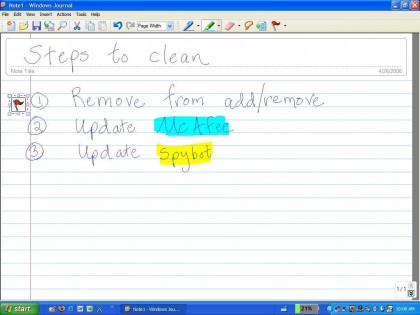 Note1 - Windows Journal
File Edit View Insert Actions Tools Help
Page Width
Steps to clean
Note Title
4/26/2006
① Remove from add/remove
② Update McAfee
③ Update Spybot
1/1
start
Note1 - Windows Jou...
21%
10:08 AM